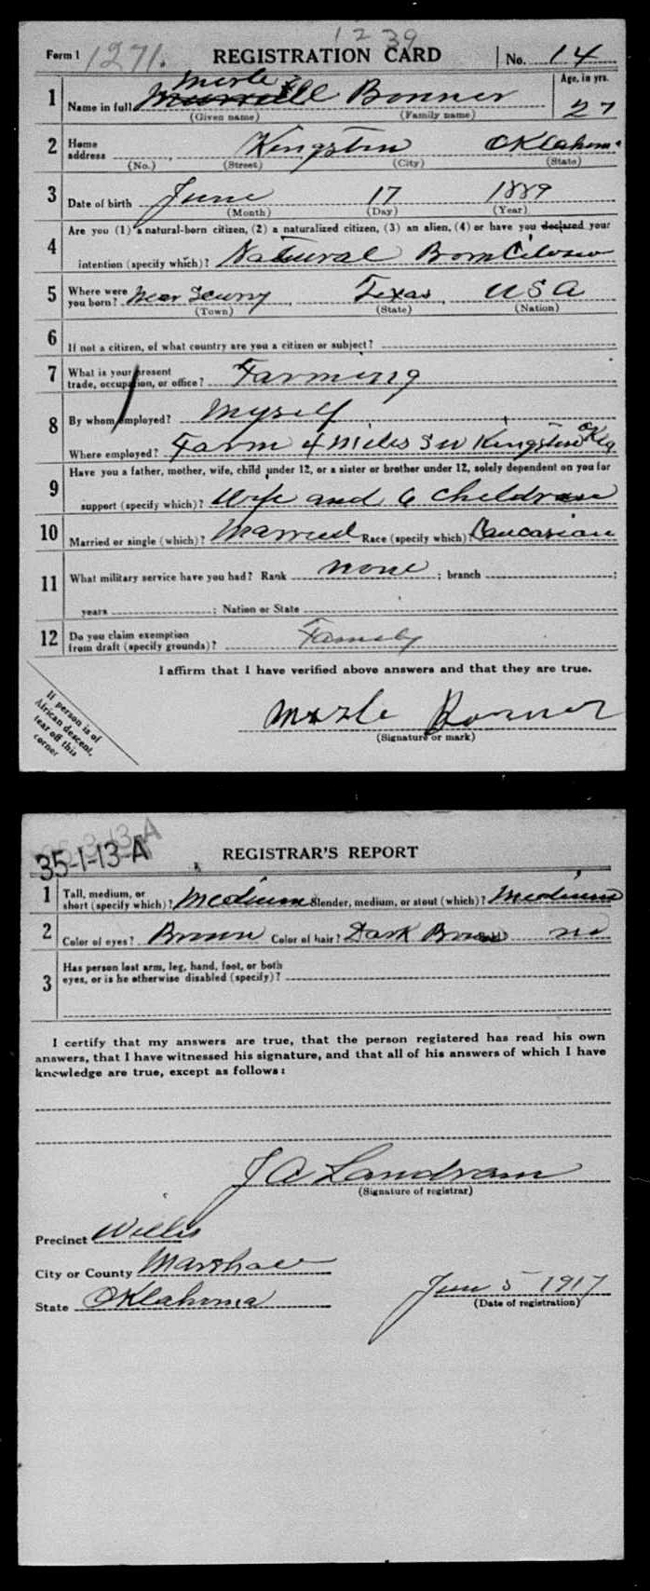 1239
Form 1 1271. REGISTRATION CARD No. 14
Merle
1 Name in full Bonner Age, in yrs. 27
(Given name) (Family name)
2 Home address Kingston Oklahoma
(No.) (Street) (City) (State)
3 Date of birth June 17 1889
(Month) (Day) (Year)
4 Are you (1) a natural-born citizen, (2) a naturalized citizen, (3) an alien, (4) or have you declared your
intention (specify which)? Natural Born
5 Where were you born? Near Scurry Texas USA
(Town) (State) (Nation)
6 If not a citizen, of what country are you a citizen or subject?
7 What is your present
trade, occupation, or office? Farming
8 By whom employed? Myself
Where employed? Farm 4 miles SW Kingston Okla
9 Have you a father, mother, wife, child under 12, or a sister or brother under 12, solely dependent on you for
support (specify which)? Wife and 6 children
10 Married or single (which)? Married Race (specify which) Caucasian
11 What military service have you had? Rank none ; branch ;
years ; Nation or State
12 Do you claim exemption
from draft (specify grounds)? Family
I affirm that I have verified above answers and that they are true.
Merle Bonner
(Signature or mark)
If person is of
African descent,
tear off this
corner
35-1-13-A
REGISTRAR'S REPORT
1 Tall, medium, or
short (specify which)? Medium Slender, medium, or stout (which)? Medium
2 Color of eyes? Brown Color of hair? Dark Brown no
3 Has person lost arm, leg, hand, foot, or both
eyes, or is he otherwise disabled (specify)?
I certify that my answers are true, that the person registered has read his own
answers, that I have witnessed his signature, and that all of his answers of which I have
knowledge are true, except as follows:
J A Landram
(Signature of registrar)
Precinct Willis
City or County Marshall
State Oklahoma Jun 5 1917
(Date of registration)